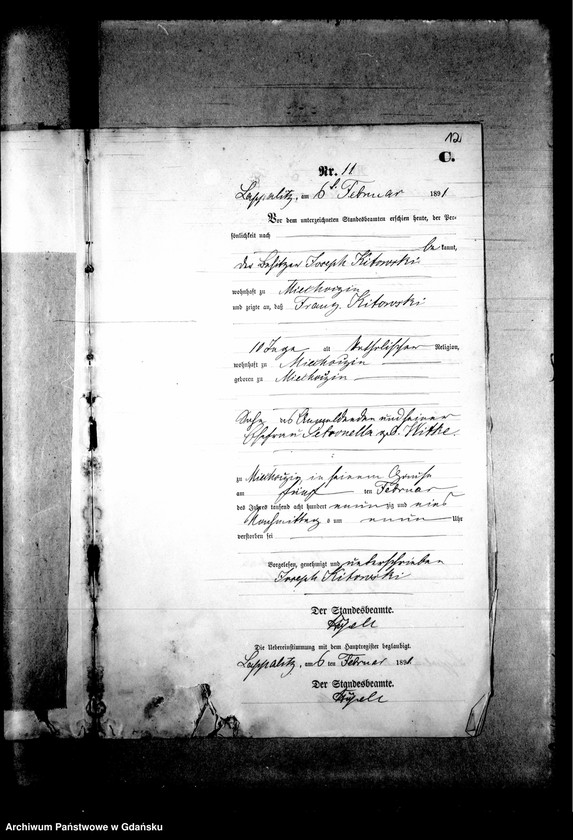 12
C.
Nr. 11
Lappalitz, am 6t Februar 1891
Vor dem unterzeichneten Standesbeamten erschien heute, der Per-
sönlichkeit nach
be kannt,
der Besitzer Joseph Kitowski
wohnhaft zu Miechuzin
und zeigte an, daß Franz Kitowski
10 Tage alt katholischer Religion,
wohnhaft zu Miechuzin
geboren zu Miechuzin
Sohn des Anmeldenden und seiner
Ehefrau Petronella geb. Witke.
zu Miechuzin in seinem Hause
am fünf ten Februar
des Jahres tausend acht hundert neunzig und eins
Nachmittags um neun Uhr
verstorben sei
Vorgelesen, genehmigt und unterschrieben
Joseph Kitowski
Der Standesbeamte.
Die Uebereinstimmung mit dem Hauptregister beglaubigt.
Lappalitz, am 6 ten Februar 1891.
Der Standesbeamte.
Archiwum Państwowe w Gdańsku